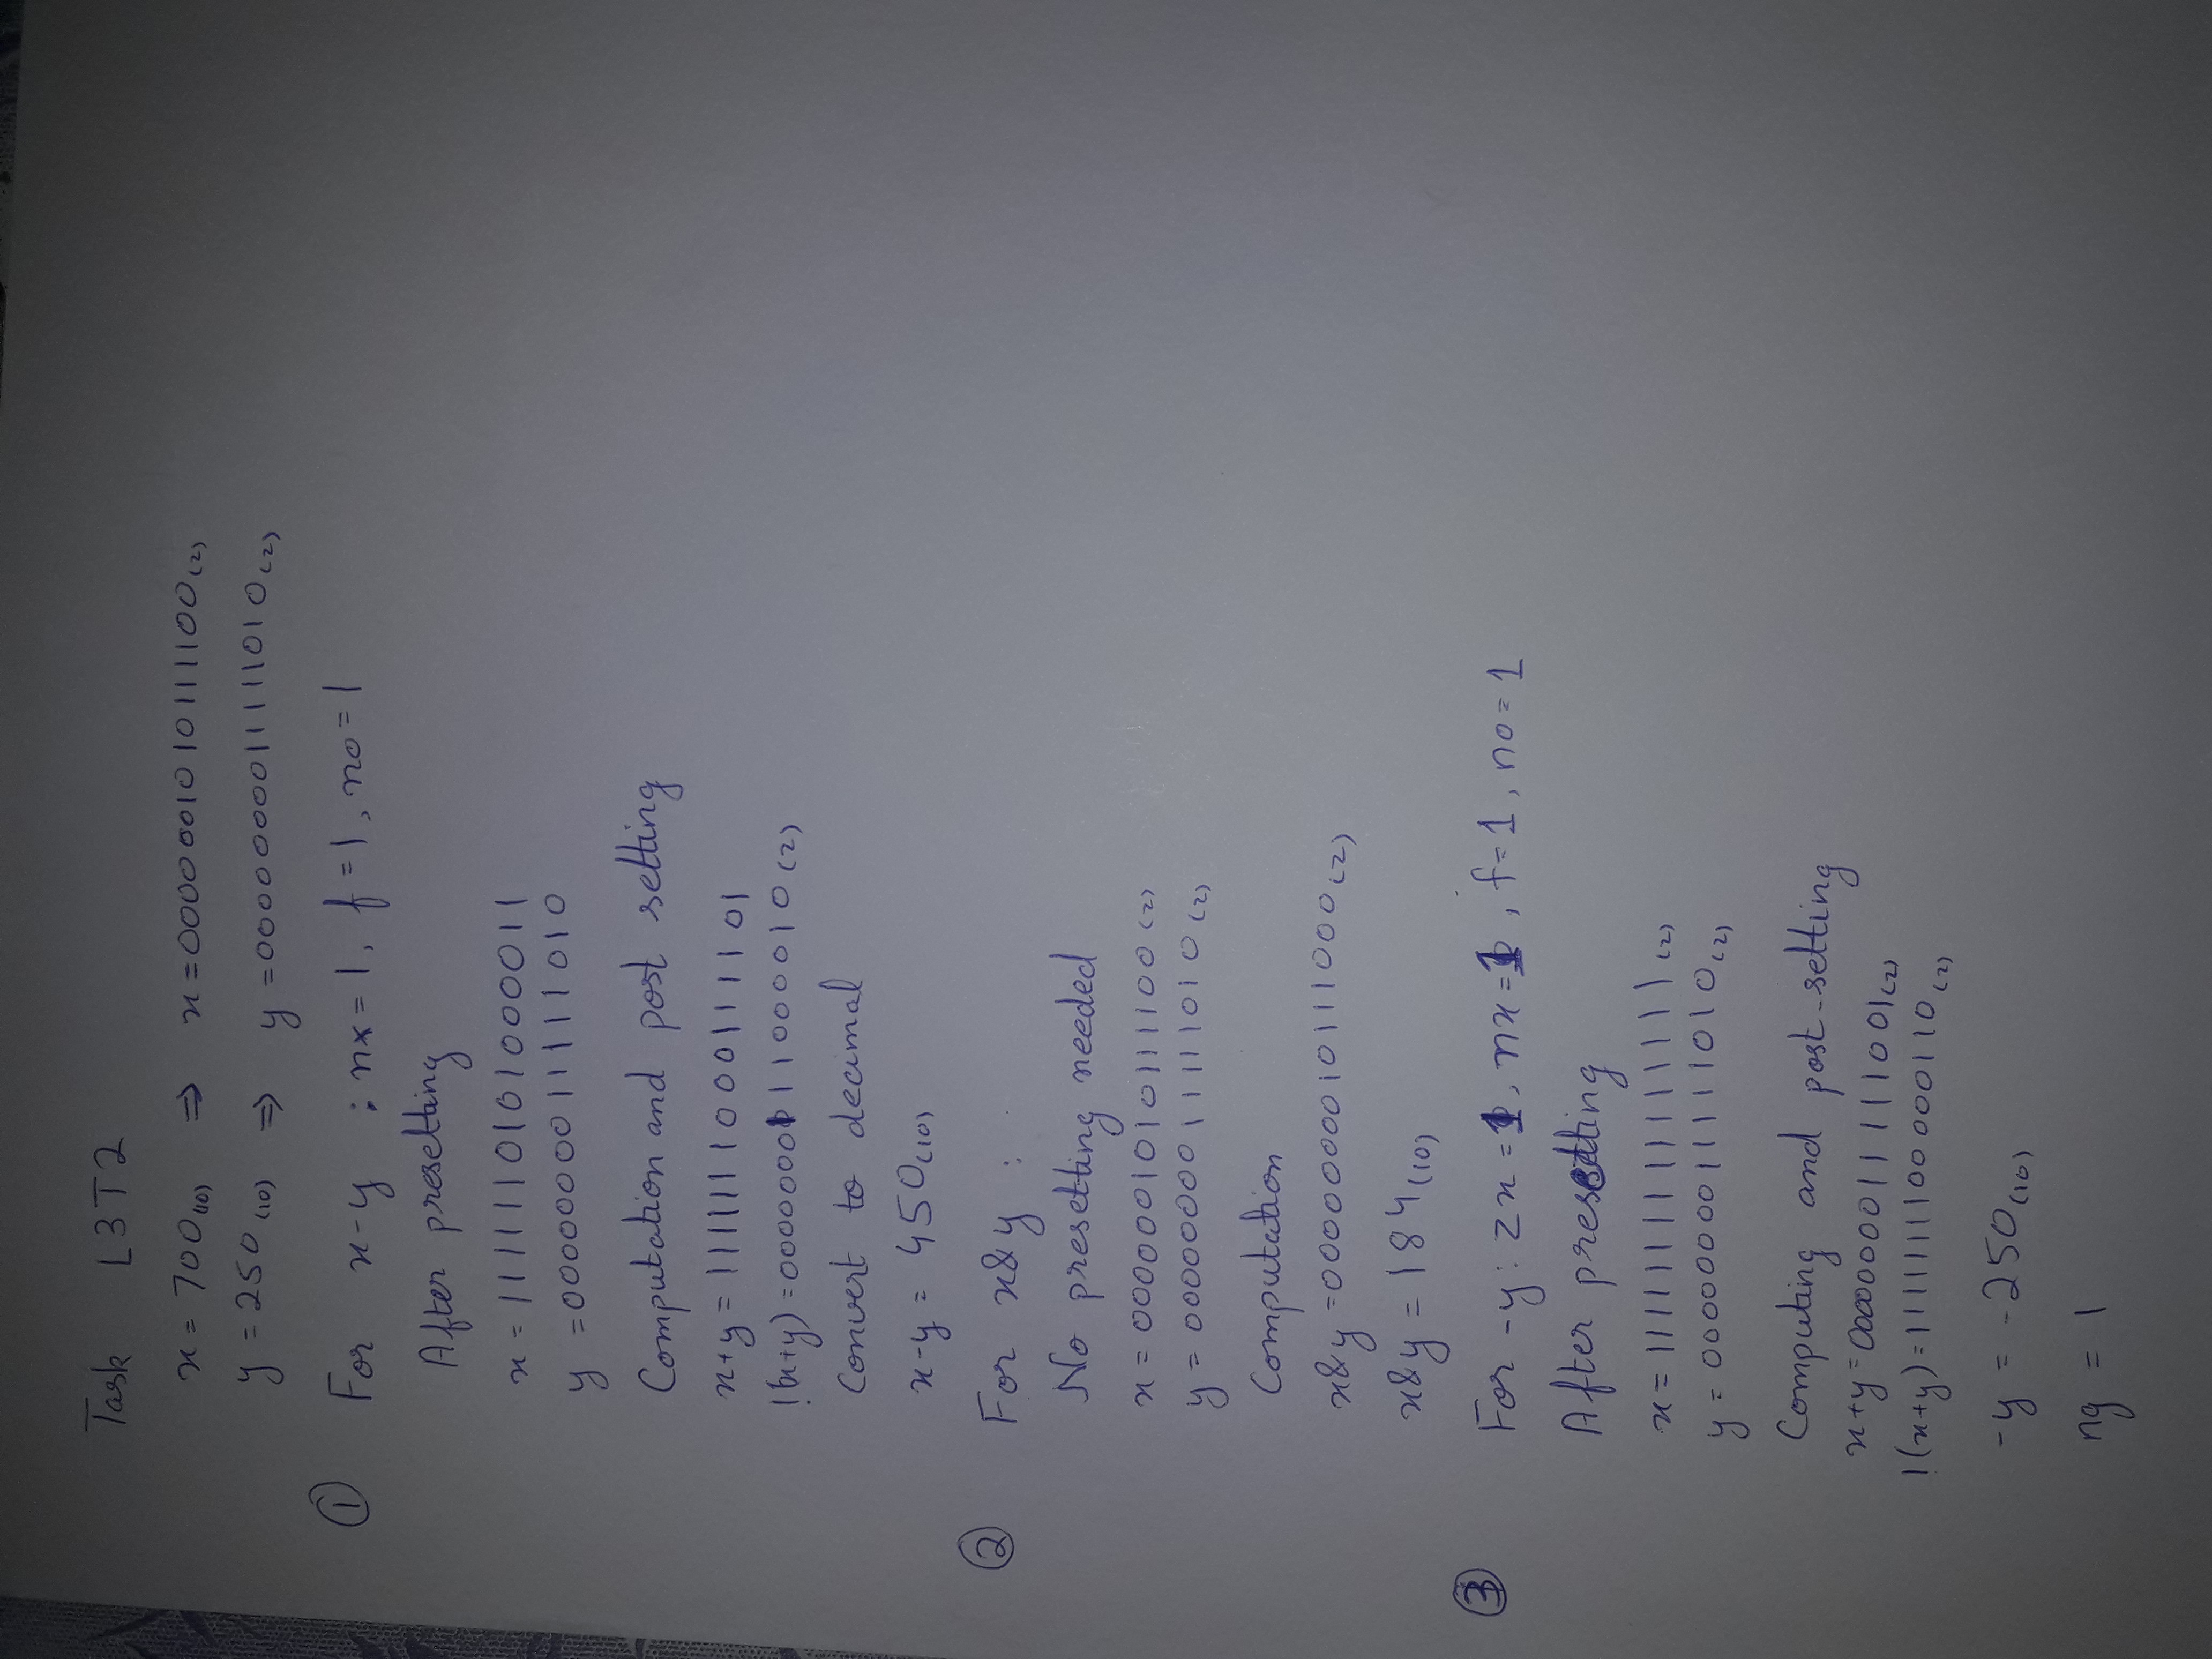 Task L3T2
x = 700(10) ⇒ x = 0000001010111100(2)
y = 250(10) ⇒ y = 0000000011111010(2)
① For x-y : nx = 1, f = 1, no = 1
After presetting
x = 1111110101000011
y = 0000000011111010
Computation and post setting
x+y = 1111111000111101
!(x+y) = 0000000111000010(2)
Convert to decimal
x-y = 450(10)
② For x&y :
No presetting needed
x = 0000001010111100(2)
y = 0000000011111010(2)
Computation
x&y = 0000000010111000(2)
x&y = 184(10)
③ For -y : zx = 1, nx = 1, f = 1, no = 1
After presetting
x = 1111111111111111(2)
y = 0000000011111010(2)
Computing and post-setting
x+y = 0000000011111001(2)
!(x+y) = 1111111100000110(2)
-y = -250(10)
ng = 1